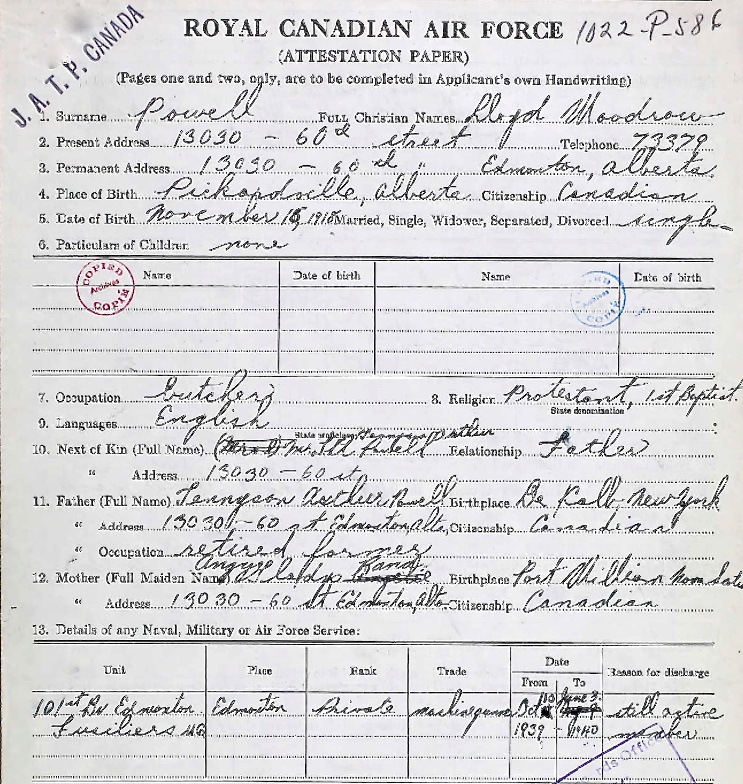 ROYAL CANADIAN AIR FORCE 1022-P-586
J. A. T. P. CANADA
(ATTESTATION PAPER)
(Pages one and two, only, are to be completed in Applicant's own Handwriting)
1. Surname Powell FULL Christian Names Lloyd Woodrow
2. Present Address 13030 - 60th street Telephone 73379
3. Permanent Address 13030 - 60th " Edmonton, Alberta.
4. Place of Birth Pickardville, Alberta Citizenship Canadian
5. Date of Birth November 16, 1918 Married, Single, Widower, Separated, Divorced single
6. Particulars of Children none
Name Date of birth Name Date of birth
COPIED Archives COPIÉ
COPIED Archives COPIÉ
7. Occupation butcher 8. Religion Protestant, 1st Baptist.
State denomination
9. Languages English
State proficiency Tennyson Arthur
10. Next of Kin (Full Name) Powell Relationship Father
" Address 13030 - 60 st
11. Father (Full Name) Tennyson Arthur Powell Birthplace De Kalb, New York
" Address 13030 - 60 st Edmonton, Alta. Citizenship Canadian
" Occupation retired farmer
12. Mother (Full Maiden Name) Gladys Birthplace Port William
" Address 13030 - 60 st Edmonton, Alta Citizenship Canadian
13. Details of any Naval, Military or Air Force Service:
Unit Place Rank Trade Date Reason for discharge
From To
101st Edmonton Edmonton Private machine gunner Oct June 3 still active
Fusiliers MG 1939 - 1940 member